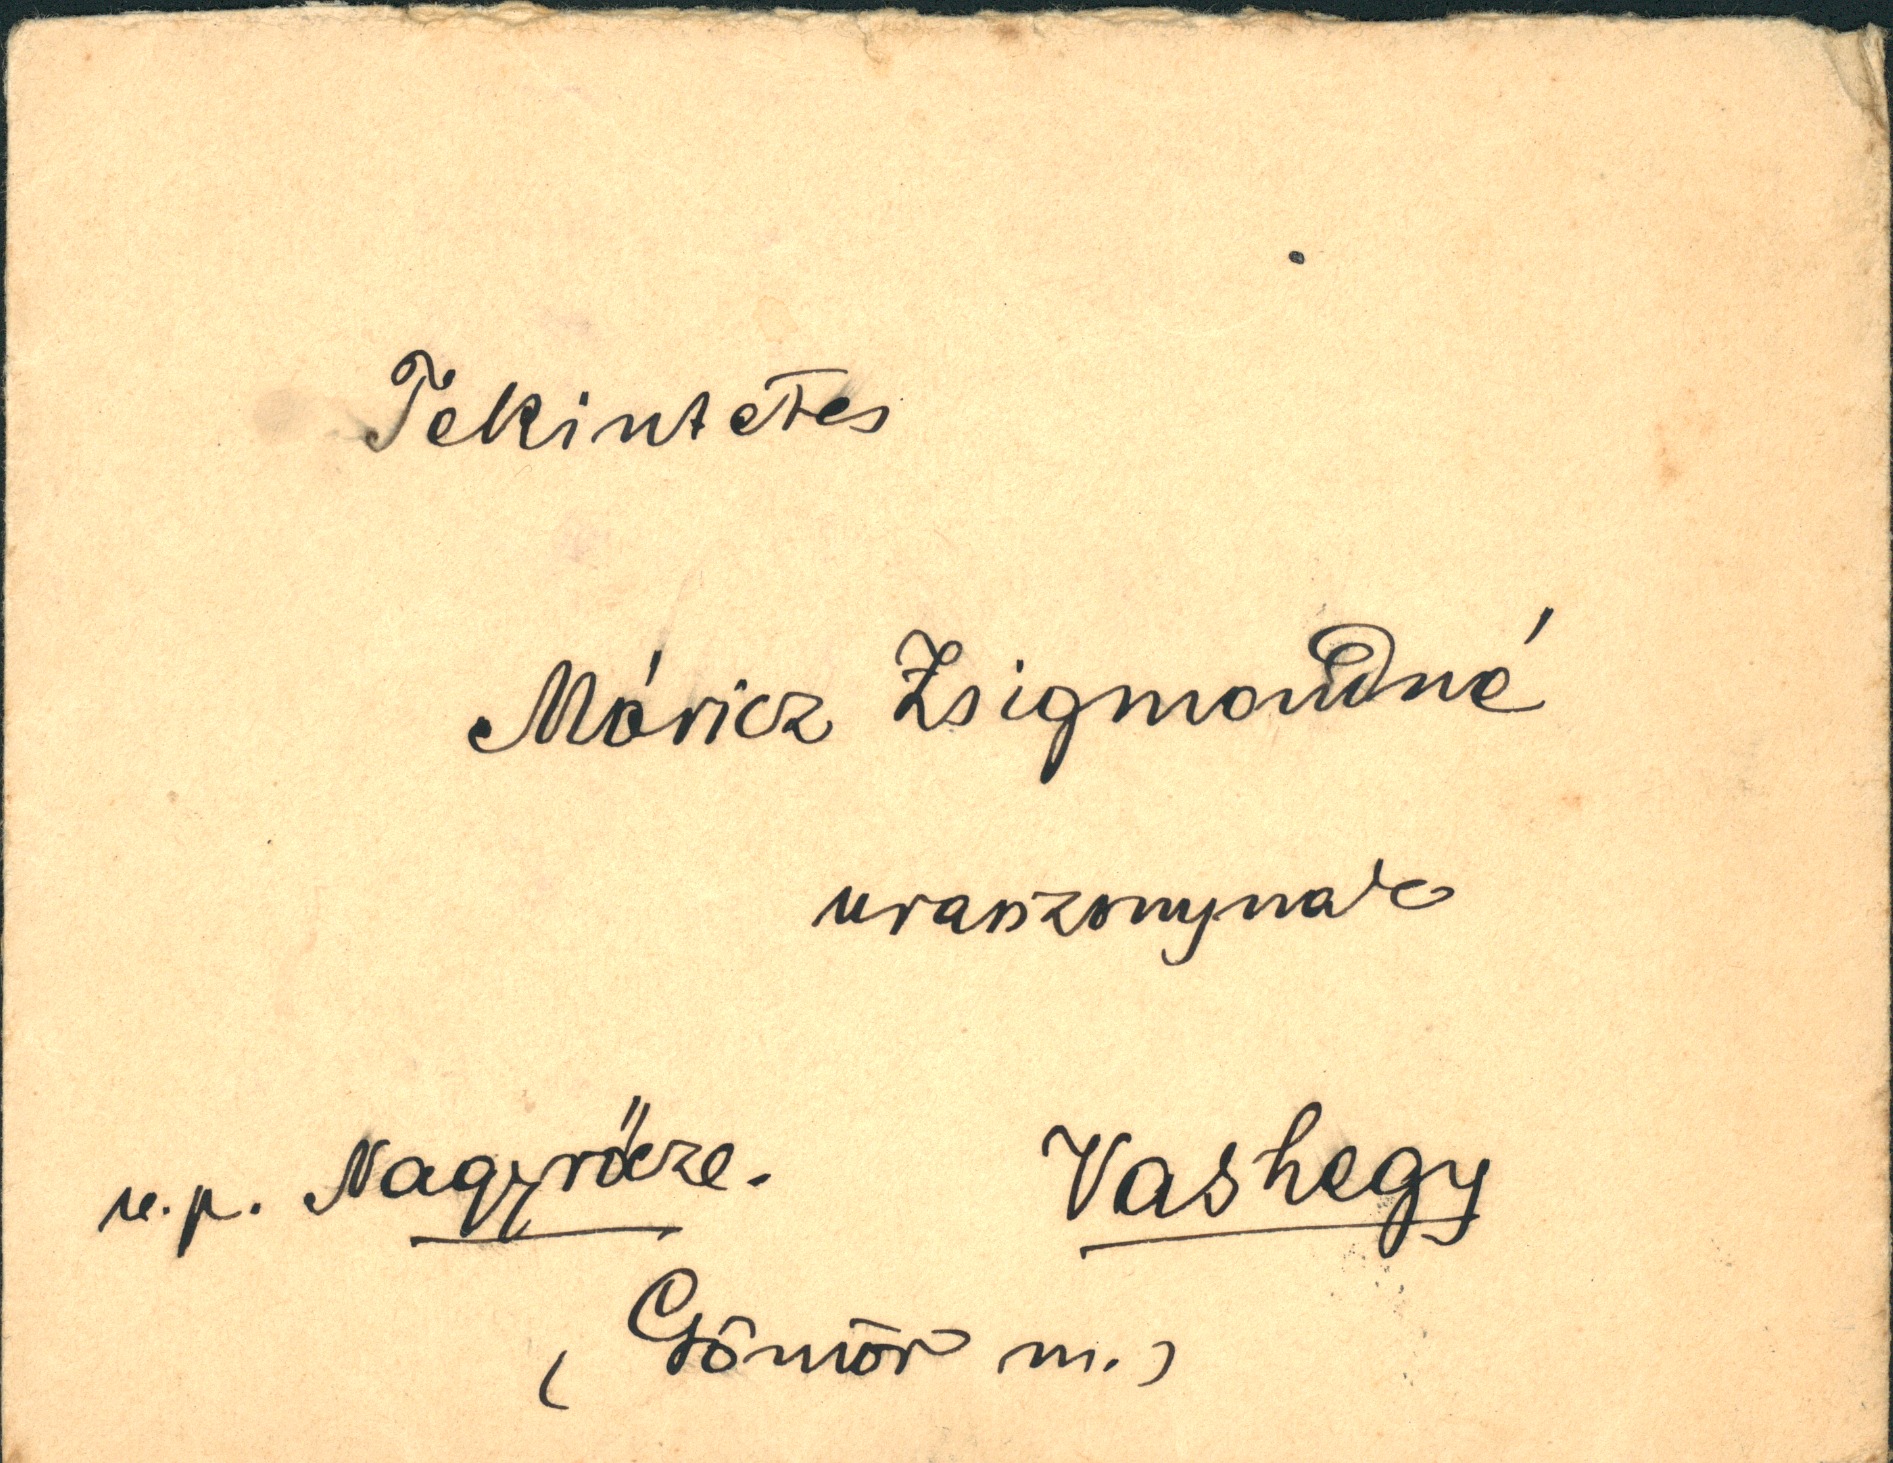 Tekintetes
Móricz Zsigmondné
uraszonynak
u. p. Nagyrőcze. Vashegy
(Gömör m.)